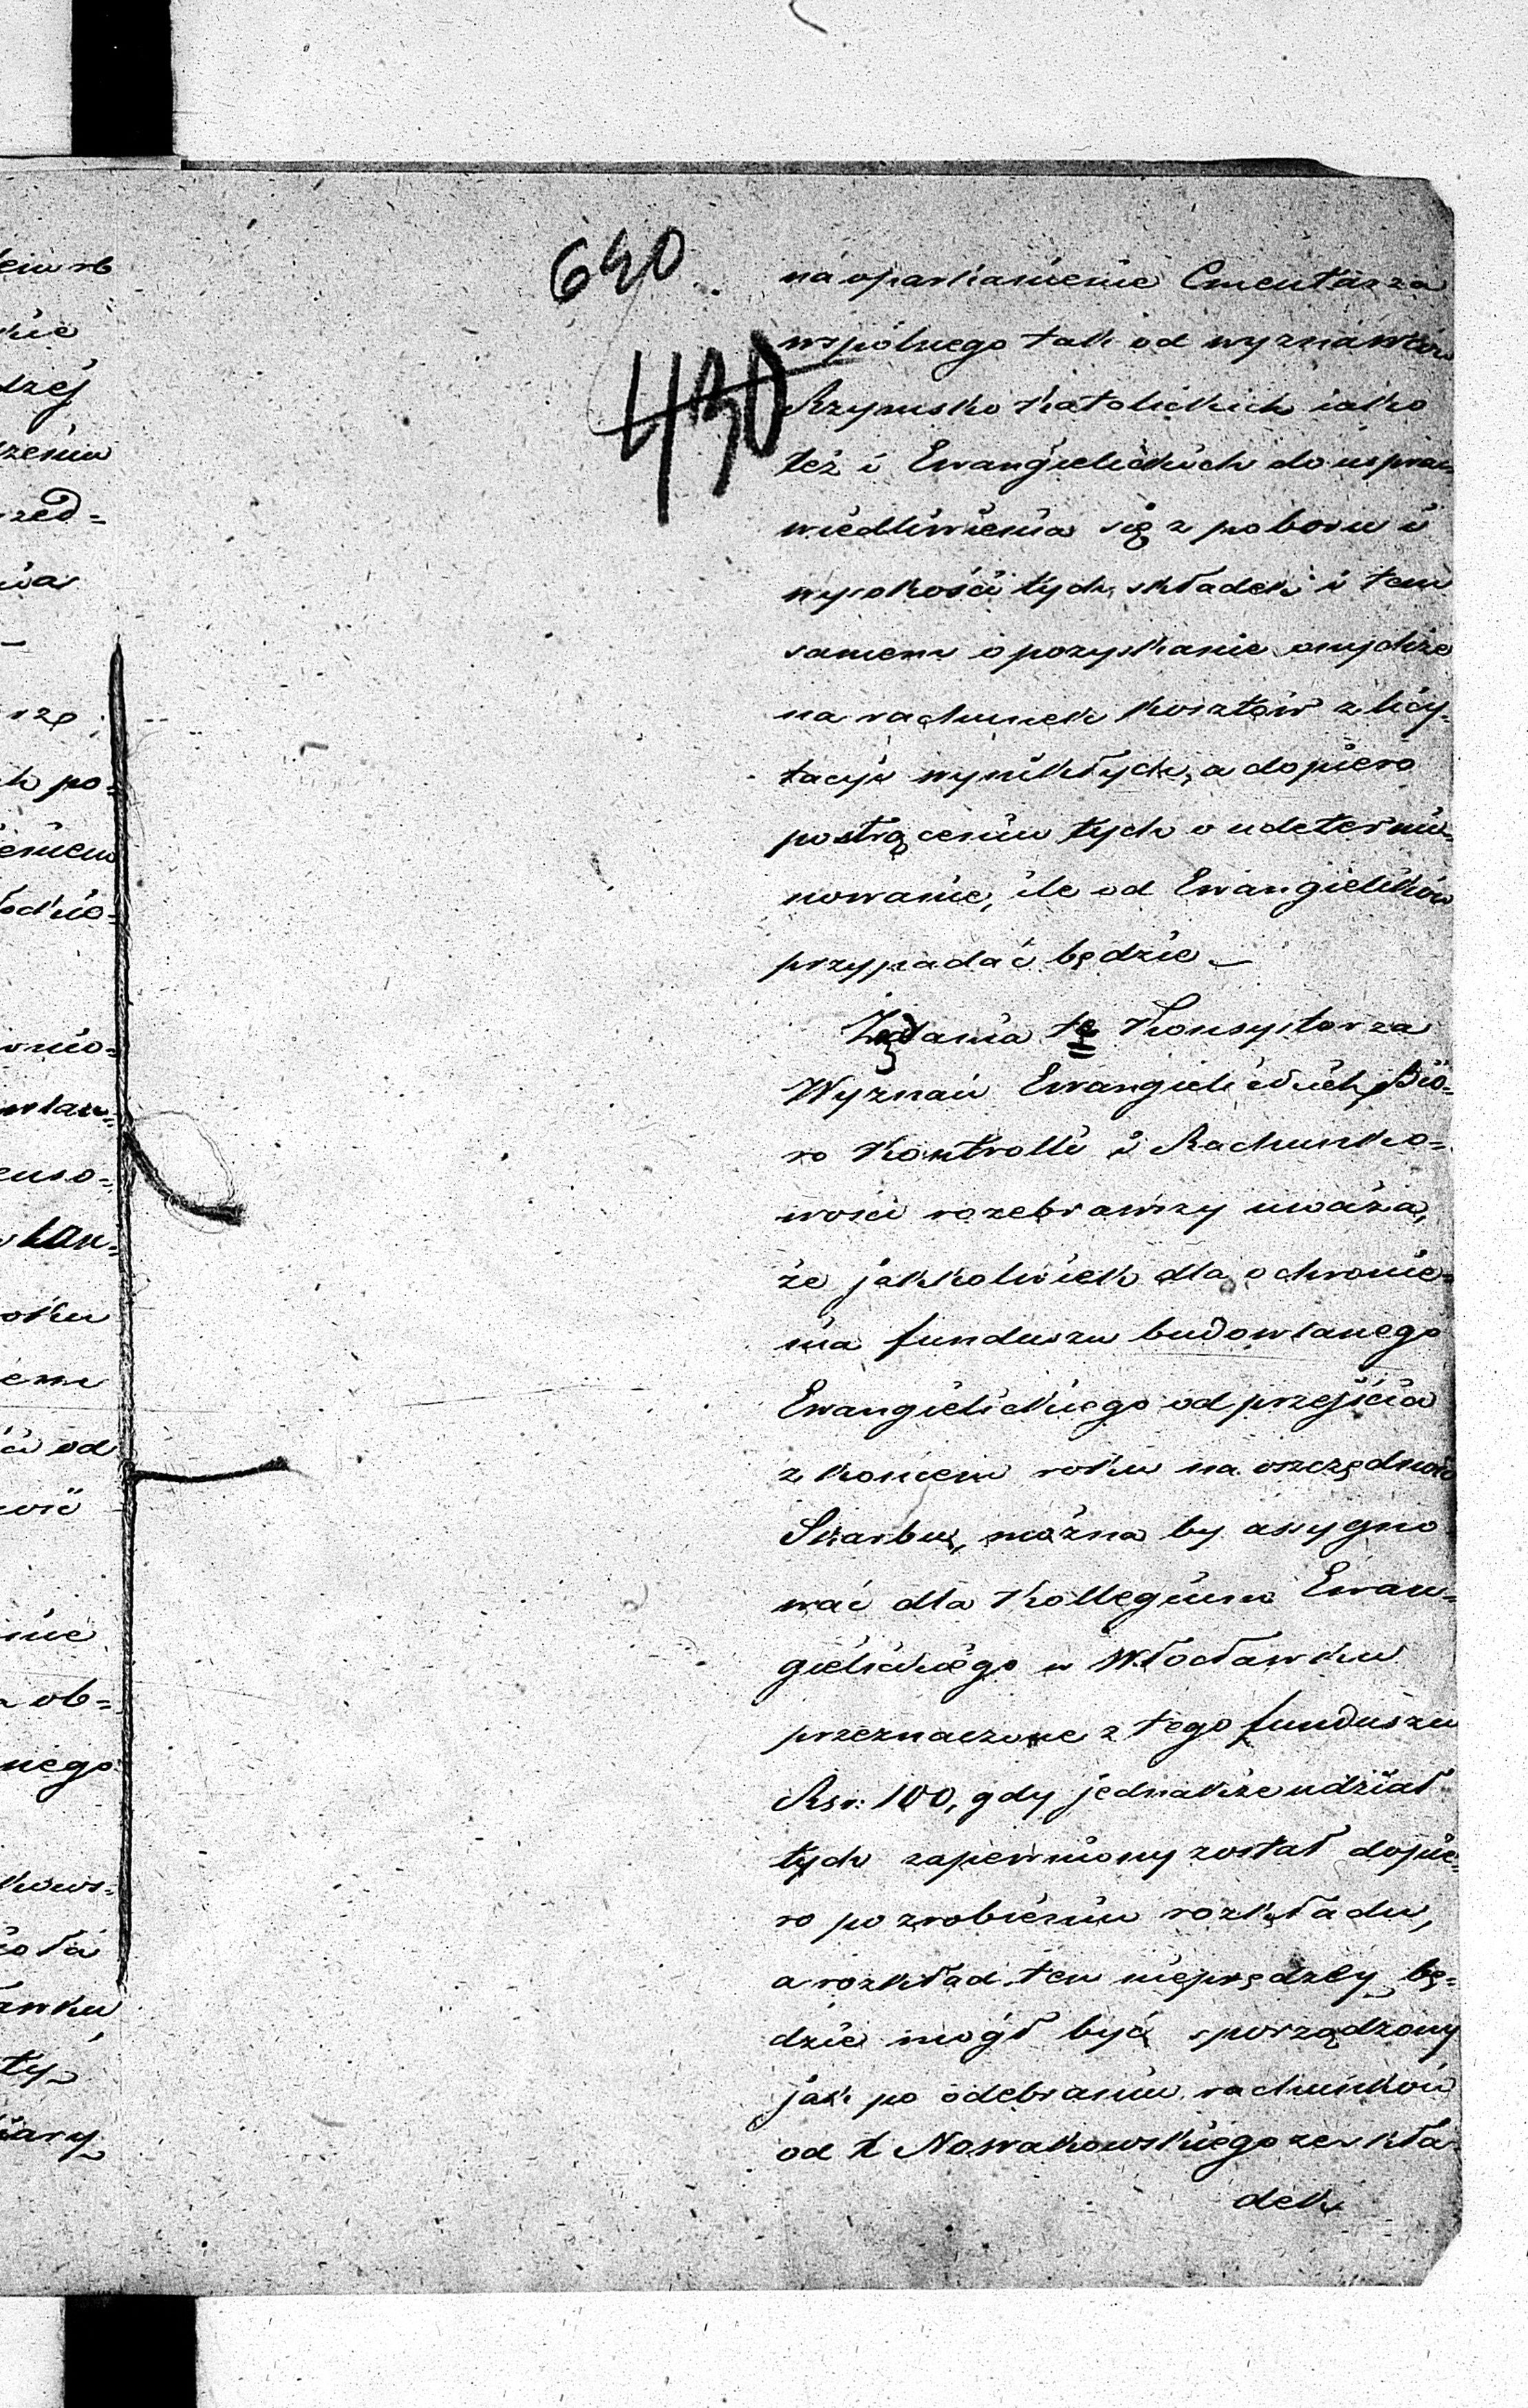 640
430
na oparkanienie Cmentarza
wspólnego tak od wyznawców
Rzymsko Katolickich iako
też i Ewangielickich do uspra-
wiedliwienia się z poboru i
wysokości tych składek i tem
samem o pozyskanie onychże
na rachunek kosztów z licy-
tacyi wynikłych, a dopiero
postrąceniu tych o udetermi-
nowanie, ile od Ewangielików
przypadać będzie —
Żądania te Konsystorza
Wyznań Ewangielickich, Biö-
ro Kontrolli i Rachunko-
wości rozebrawszy uważa,
że jakkolwiek dla ochronie-
nia funduszu budowlanego
Ewangielickiego od przejścia
z końcem roku na oszczędność
Skarbu, można by assygno
wać dla Kollegium Ewan-
gielickiego w Włocławku
przeznaczone z tego funduszu
Rsr: 100, gdy jednakże udział
tych zapewniony został dopie-
ro po zrobieniu rozkładu,
a rozkład ten nieprędzey bę-
dzie mógł być sporządzony
jak po odebraniu rachunków
od Nowakowskiego ze skła-
dek